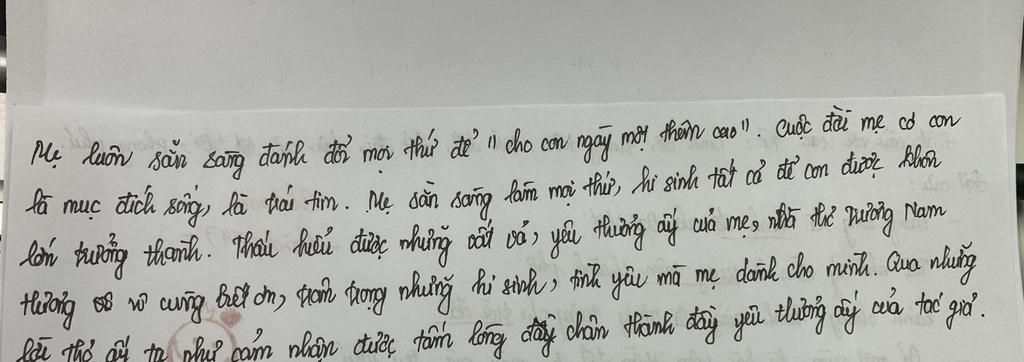 Mẹ luôn sẵn sàng đánh đổi mọi thứ để "cho con ngày một thêm cao". Cuộc đời mẹ có con
là mục đích sống, là trái tim. Mẹ sẵn sàng làm mọi thứ, hi sinh tất cả để con được khôn
lớn trưởng thành. Thấu hiểu được những vất vả, yêu thương ấy của mẹ, nhà thơ Trương Nam
Hương vô cùng biết ơn, trân trọng những hi sinh, tình yêu mà mẹ dành cho mình. Qua những
lời thơ ấy ta như cảm nhận được tấm lòng chân thành đầy yêu thương ấy của tác giả.